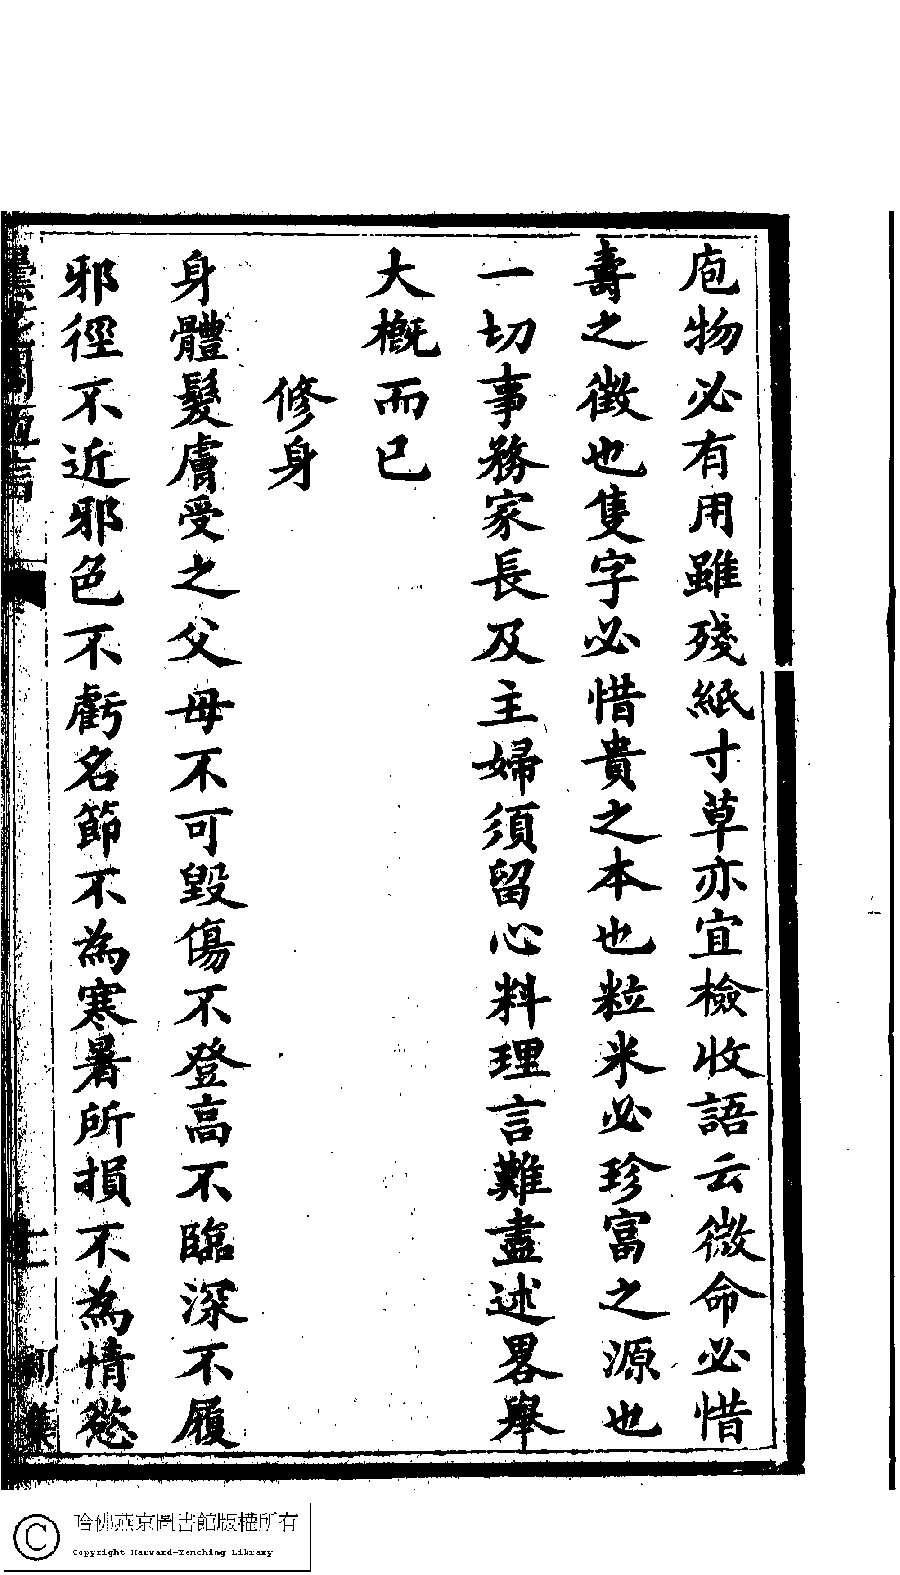 庖物必有用雖殘紙寸草亦宜檢收語云微命必惜
壽之徵也隻字必惜貴之本也粒米必珍富之源也
一切事務家長及主婦須留心料理言難盡述畧舉
大槪而已
修身
身體髮膚受之父母不可毀傷不登高不臨深不履
邪徑不近邪色不虧名節不為寒暑所損不為情慾
集
哈佛燕京圖書館版權所有
Copyright Harvard-Yenching Library